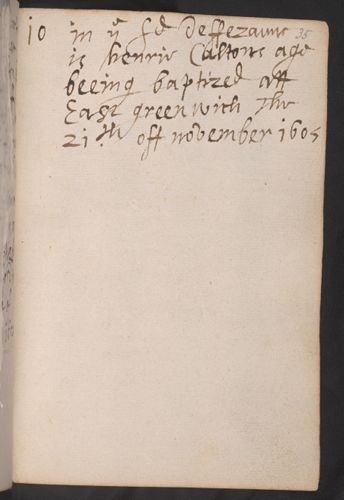 10 in ẏ sd deffezaunc 35
is henrie Caltons age
beeing baptized att
East greenwich the
21.th off november 1605